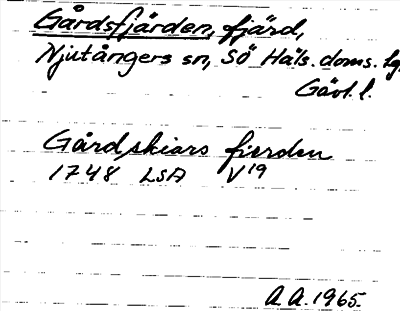 Gårdsfjärden, fjärd,
Njutångers sn, Sö Häls. doms. lg.
Gävl. l.
Gårdskiars fierden
1748 LSA V19
A A. 1965.